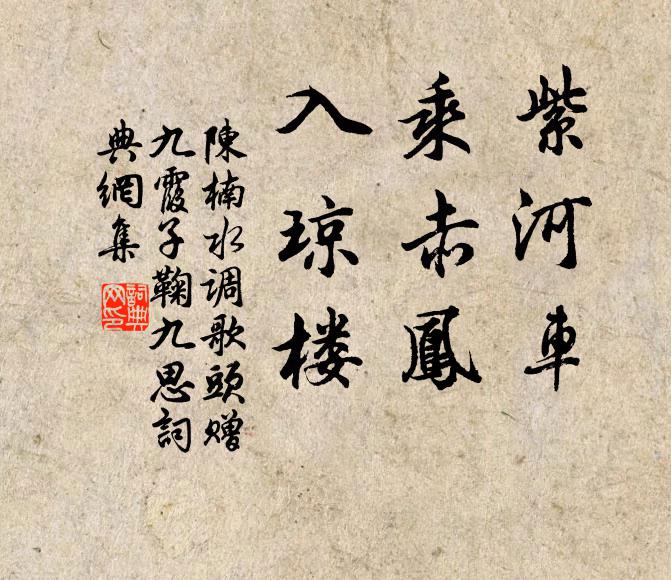 紫河車
乘赤鳳
入琼楼
陳楠水调歌頭赠
九霞子鞠九思詞
典網集
詞典
网印